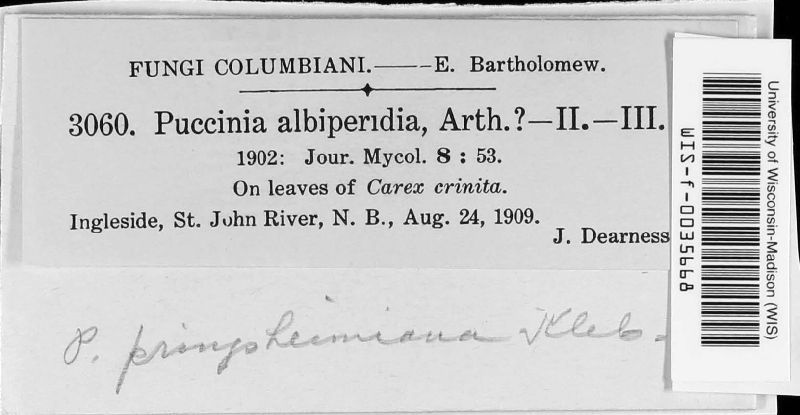 FUNGI COLUMBIANI.——E. Bartholomew.
3060. Puccinia albiperidia, Arth.?—II.—III.
1902: Jour. Mycol. 8 : 53.
On leaves of Carex crinita.
Ingleside, St. John River, N. B., Aug. 24, 1909.
J. Dearness
P. pringsheimiana Kleb.
University of Wisconsin-Madison (WIS)
WIS-f-0035968